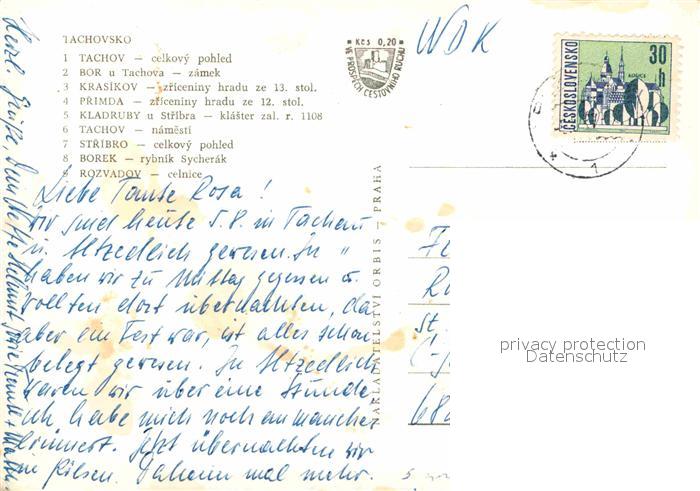 TACHOVSKO
1 TACHOV — celkový pohled
2 BOR u Tachova — zámek
3 KRASÍKOV — zříceniny hradu ze 13. stol.
4 PŘIMDA — zříceniny hradu ze 12. stol.
5 KLADRUBY u Stříbra — klášter zal. r. 1108
6 TACHOV — náměstí
7 STŘÍBRO — celkový pohled
8 BOREK — rybník Sycherák
9 ROZVADOV — celnice
Liebe Tante Rosa!
Wir sind heute 5.8. in Tachau
u. Altzedlich gewesen. In "
haben wir zu Mittag gegessen u.
wollten dort übernachten, da
aber ein Fest war, ist alles schon
belegt gewesen. In Altzedlich
waren wir über eine Stunde
ich habe mich noch an manches
erinnert. Jetzt übernachten wir
in Pilsen. Daheim mal mehr.
Herzl. Grüße, Dein Neffe Hellmut sowie
Kčs 0,20
VE PROSPĚCH CESTOVNÍHO RUCHU
NAKLADATELSTVÍ ORBIS — PRAHA
WDK
ČESKOSLOVENSKO
30
h
1
St.
68
privacy protection
Datenschutz